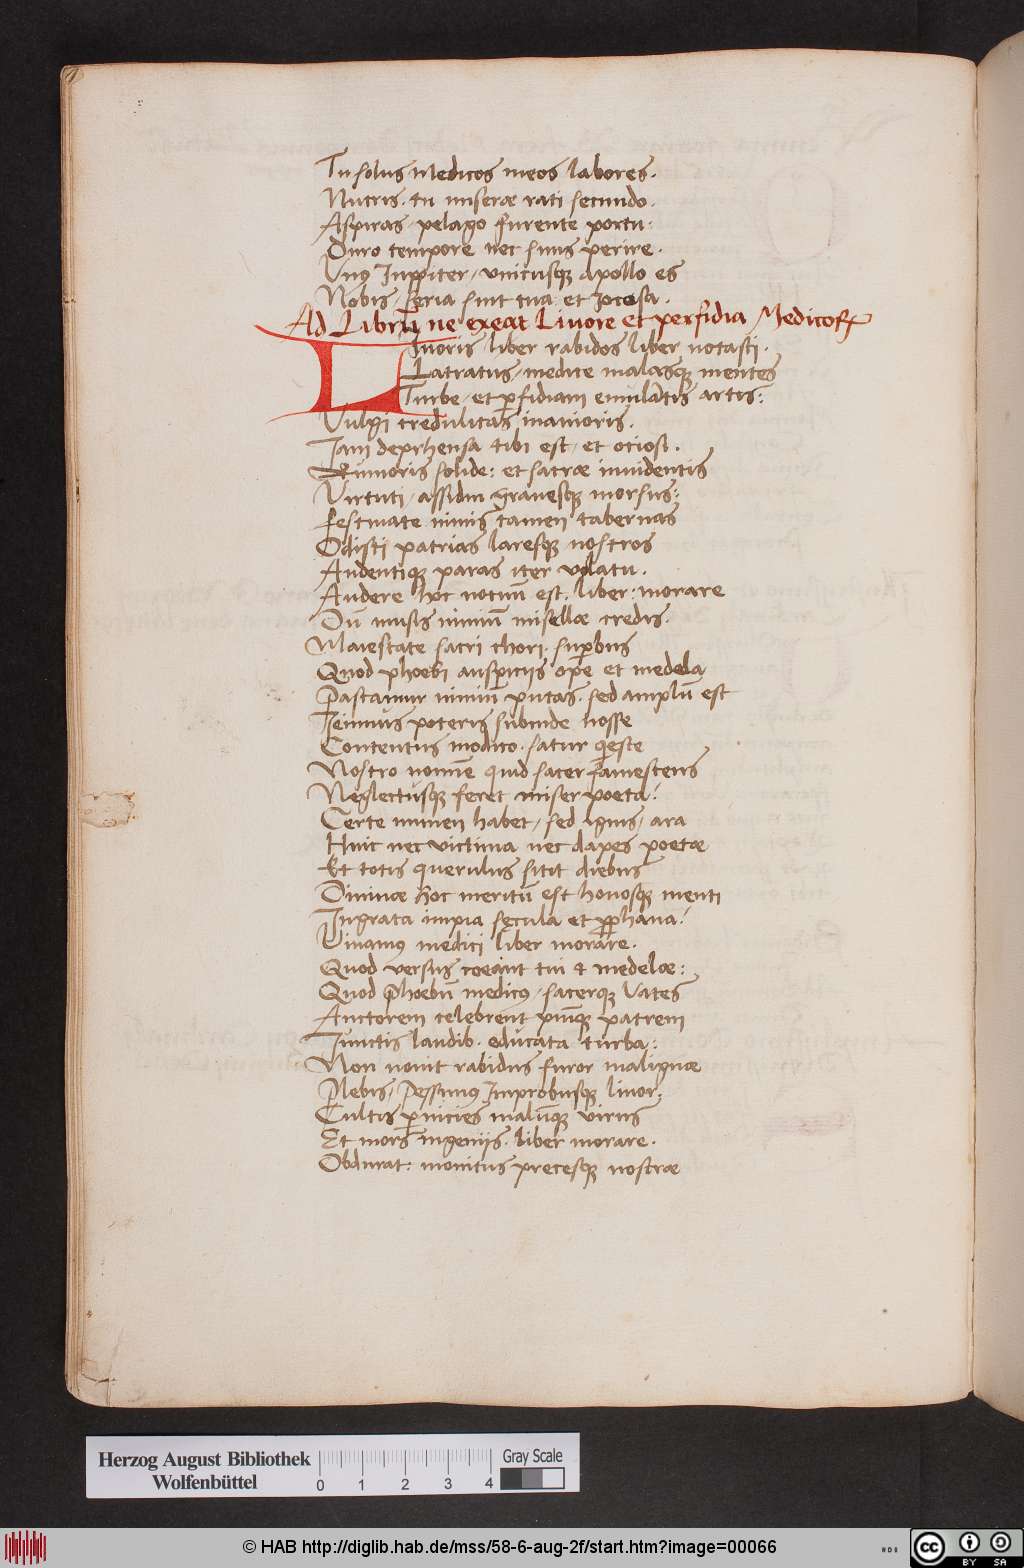 Tu solus medicos meos labores.
Nutris. tu miseræ rati secundo.
Aspiras pelago furente portu.
Duro tempore nec sinis perire.
Vnꝰ Juppiter, vnicusqꝫ apollo es
Nobis, seria sint tua et Jocosa.
Ad Librū ne exeat Liuore et perfidia Medicoꝝ
Liuoris liber rabidos liber notasti.
Latratus, medice malasqꝫ mentes
Turbe, et ꝑfidiam emulātis artis:
Vulgi credulitas inanioris.
Jam deprhensa tibi est, et ociosi.
Rumoris solide: et sacræ inuidentis
Virtuti, assidui grauesqꝫ morsus:
Festinate nimis tamen tabernas
Odisti patrias laresqꝫ nostros
Audentiqꝫ paras iter volatu.
Audere hoc notum̄ est. liber: morare
Dū musis nimiū misellæ credis.
Maiestate sacri chori. suꝑbus
Quod phoebi auspicijs ope et medela
Pascamur nimiū putas. sed amplū est
Tenuius poteris subinde nosse
Contentus modico. satur queste
Nostro nomine quid sacer famescens
Neglectusqꝫ feret miser poeta?
Certe numen habet, sed ignis, ara
Huic nec victima nec dapes poetæ
Et totis querulus sitit diebus
Diuinæ hoc meritū est honosqꝫ menti
Ingrata impia secula et ꝓphana?
Viuamꝰ medici liber morare.
Quod versus coeant tui & medelæ:
Quod Phoebū medicꝰ, sacerqꝫ Vates
Auctorem celebrent piuqꝫ patrem
Iunctis laudib. educata turba:
Non nouit rabidus furor malignæ
Plebis, Pessimꝰ Improbusqꝫ liuor,
Cultis ꝑnicies malūqꝫ virus
Et mors ingenijs. liber morare.
Obdurat: monitus precesqꝫ nostræ
Herzog August Bibliothek
Wolfenbüttel
0 1 2 3 4
Gray Scale
© HAB http://diglib.hab.de/mss/58-6-aug-2f/start.htm?image=00066
cc BY SA